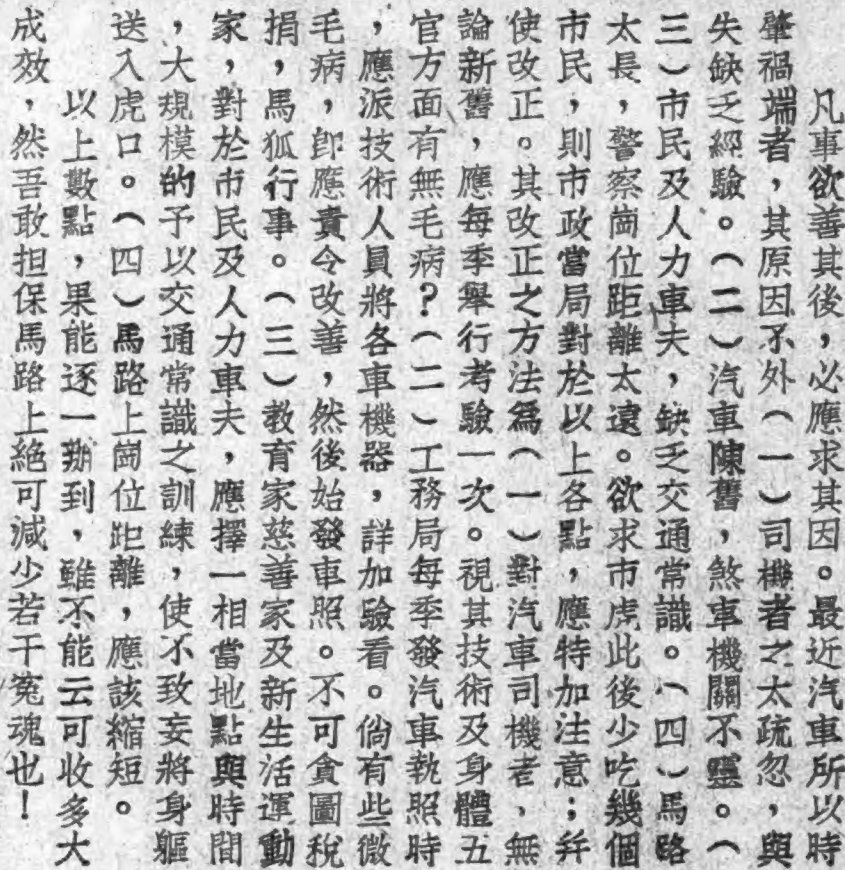 凡事欲善其後，必應求其因。最近汽車所以時
肇禍端者，其原因不外（一）司機者之太疏忽，與
失缺乏經驗。（二）汽車陳舊，煞車機關不靈。（
三）市民及人力車夫，缺乏交通常識。（四）馬路
太長，警察崗位距離太遠。欲求市虎此後少吃幾個
市民，則市政當局對於以上各點，應特加注意；幷
使改正。其改正之方法爲（一）對汽車司機者，無
論新舊，應每季舉行考驗一次。視其技術及身體五
官方面有無毛病？（二）工務局每季發汽車執照時
，應派技術人員將各車機器，詳加驗看。倘有些微
毛病，卽應責令改善，然後始發車照。不可貪圖稅
捐，馬狐行事。（三）教育家慈善家及新生活運動
家，對於市民及人力車夫，應擇一相當地點與時間
，大規模的予以交通常識之訓練，使不致妄將身軀
送入虎口。（四）馬路上崗位距離，應該縮短。
以上數點，果能逐一辦到，雖不能云可收多大
成效，然吾敢担保馬路上絕可減少若干冤魂也！